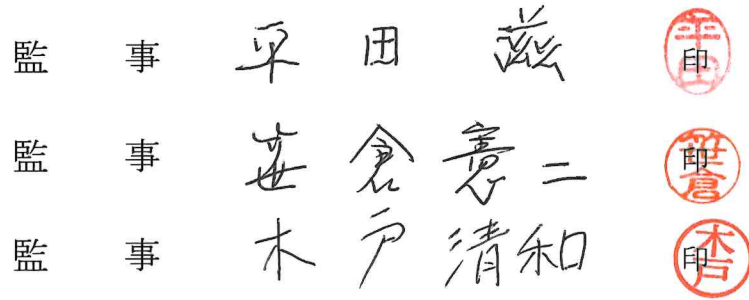 監事 平田 滋 印
監事 笹倉憲二 印
監事 木戸清和 印